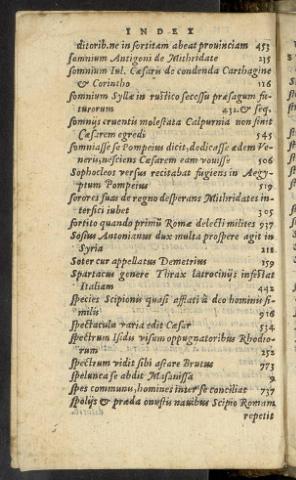 INDEX
ditorib. ne in sortitam abeat prouinciam 453
somnium Antigoni de Mithridate 235
somnium Iul. Cæsaris de condenda Carthagine
& Corintho 116
somnium Syllæ in rustico secessu præsagum fu-
turorum 432. & seq.
somnijs cruentis molestata Calpurnia non sinit
Cæsarem egredi 545
somniasse se Pompeius dicit, dedicasse ædem Ve-
neri, nesciens Cæsarem eam vouisse 506
Sophocleos versus recitabat fugiens in Aegy-
ptum Pompeius 519
sorores suas de regno desperans Mithridates in-
terfici iubet 305
sortito quando primũ Romæ delecti milites 937
Sosius Antonianus dux multa prospere agit in
Syria 211
Soter cur appellatus Demetrius 159
Spartacus genere Thrax latrocinijs infestat
Italiam 442
species Scipionis quasi afflati à deo hominis si-
milis 916
spectacula varia edit Cæsar 534
spectrum Isidis visum oppugnatoribus Rhodio-
rum 252
spectrum vidit sibi astare Brutus 973
spelunca se abdit Masanissa 9
spes communis, homines inter se conciliat 737
spolijs & præda onustis nauibus Scipio Romam
repetit